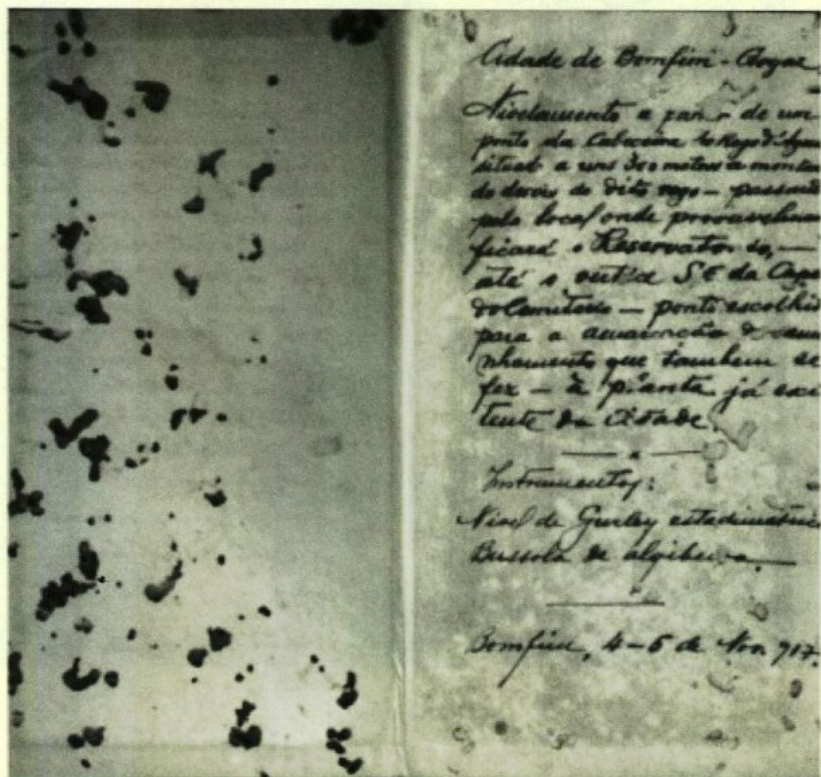 Cidade de Bomfim - Goyaz
Nivelamento a partir de um
ponto da Cabeceira do Rego d'Agua
situado a uns 300 metros a montan
do desvio do dito rego - passand
pelo local onde provavelmen
ficará o Reservatorio, —
até a SE da
do Cemiterio — ponto escolhid
para a amarração do cami
nhamento que tambem se
fez — à planta já exis
tente da Cidade.
Instrumentos:
Nivel de Gurley estadimetric
Bussola de algibeira.
Bomfim, 4-5 de Nov. 917.